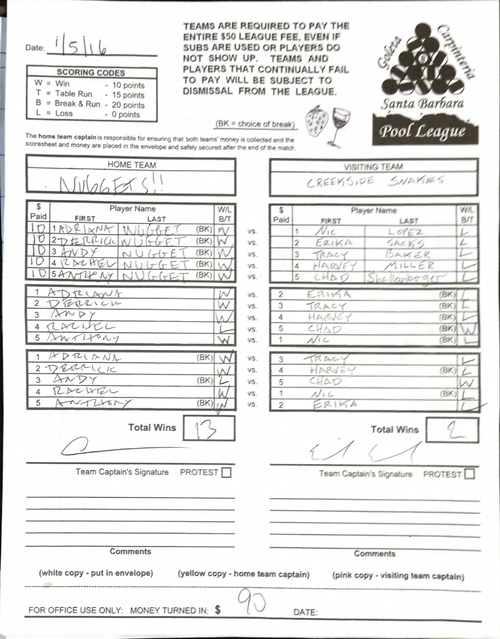 TEAMS ARE REQUIRED TO PAY THE
ENTIRE $50 LEAGUE FEE, EVEN IF
SUBS ARE USED OR PLAYERS DO
NOT SHOW UP. TEAMS AND
PLAYERS THAT CONTINUALLY FAIL
TO PAY WILL BE SUBJECT TO
DISMISSAL FROM THE LEAGUE.
Date: 1/5/16
SCORING CODES
W = Win - 10 points
T = Table Run - 15 points
B = Break & Run - 20 points
L = Loss - 0 points
(BK = choice of break)
Goleta
Carpinteria
8
Santa Barbara
Pool League
The home team captain is responsible for ensuring that both teams' money is collected and the
scoresheet and money are placed in the envelope and safely secured after the end of the match.
HOME TEAM VISITING TEAM
NUGGETS!! CREEKSIDE SNAKES
$ Paid Player Name FIRST LAST W/L B/T $ Paid Player Name FIRST LAST W/L B/T
10 1 ADRIANA NUGGET (BK) W vs. 1 NIC LOPEZ L
10 2 DERRICK NUGGET (BK) W vs. 2 ERIKA SACKS L
10 3 ANDY NUGGET (BK) W vs. 3 TRACY BAKER L
10 4 RACHEL NUGGET (BK) W vs. 4 HARVEY MILLER L
10 5 ANTHONY NUGGET (BK) W vs. 5 CHAD Shellenberger L
1 ADRIANA W vs. 2 ERIKA (BK) L
2 DERRICK W vs. 3 TRACY (BK) L
3 ANDY W vs. 4 HARVEY (BK) L
4 RACHEL L vs. 5 CHAD (BK) W
5 ANTHONY W vs. 1 NIC (BK) L
1 ADRIANA (BK) W vs. 3 TRACY L
2 DERRICK W vs. 4 HARVEY (BK) L
3 ANDY (BK) L vs. 5 CHAD W
4 RACHEL W vs. 1 NIC (BK) L
5 ANTHONY (BK) W vs. 2 ERIKA L
Total Wins 13 Total Wins 2
Team Captain's Signature PROTEST Team Captain's Signature PROTEST
Comments Comments
(white copy - put in envelope) (yellow copy - home team captain) (pink copy - visiting team captain)
FOR OFFICE USE ONLY: MONEY TURNED IN: $ 90 DATE: